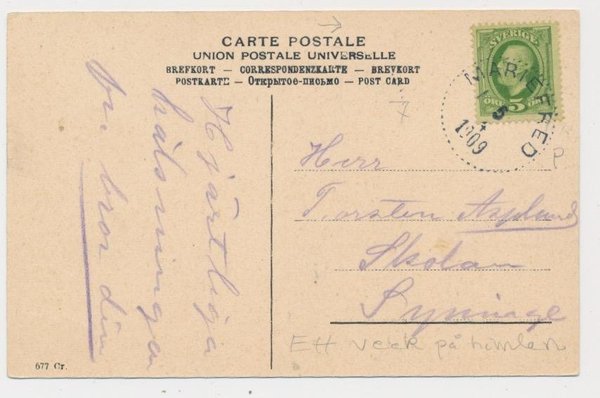 CARTE POSTALE
UNION POSTALE UNIVERSELLE
BREFKORT — CORRESPONDENZKARTE — BREVKORT
POSTKARTE — Открытое-письмо — POST CARD
SVERIGE
ÖRE 5 ÖRE
MARIEFRED
5
1909
7
Hjärtliga
hälsningar
bror din
Herr
Torsten Asplund
Skolan
Ett veck på himlen
677 Cr.